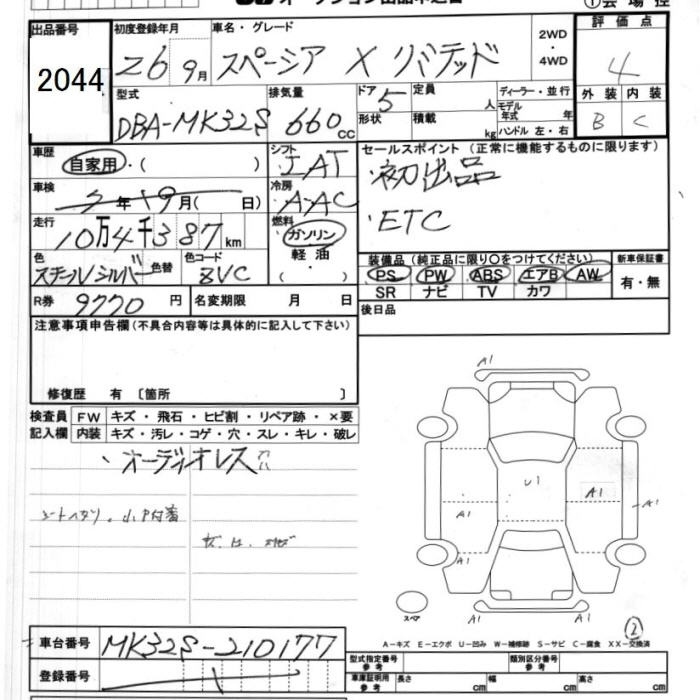 ①会場控
出品番号 初度登録年月 車名・グレード 2WD・4WD 評価点
2044 26 9月 スペーシア X リミテッド 4
型式 排気量 ドア 5 定員 人 ディーラー・並行 外装 内装
DBA-MK32S 660cc 形状 積載 kg モデル年式 年 ハンドル 左・右 B C
車歴 シフト セールスポイント (正常に機能するものに限ります)
自家用・( ) IAT 初出品
車検 年 月( 日) 冷房 AAC
ETC
走行 燃料
10万4千387km ガソリン
装備品 (純正品に限り○をつけてください) 新車保証書
色 色替 色コード 軽油
スチールシルバー ZVC ( ・ ) PS PW ABS エアB AW 有・無
SR ナビ TV カワ
R券 9770 円 名変期限 月 日 後日品
注意事項申告欄 (不具合内容等は具体的に記入して下さい)
修復歴 有 〔箇所 〕
検査員 FW キズ・飛石・ヒビ割・リペア跡・×要
記入欄 内装 キズ・汚レ・コゲ・穴・スレ・キレ・破レ
オーディオレス
A1
U1
A1
A1
A1
A1
スペア
A1
A1
②
A-キズ E-エクボ U-凹み W-補修跡 S-サビ C-腐食 XX-交換済
車台番号 MK32S-210177
型式指定番号 参考 類別区分番号 参考
登録番号 車庫証明用 参考 長さ cm 幅 cm 高さ cm